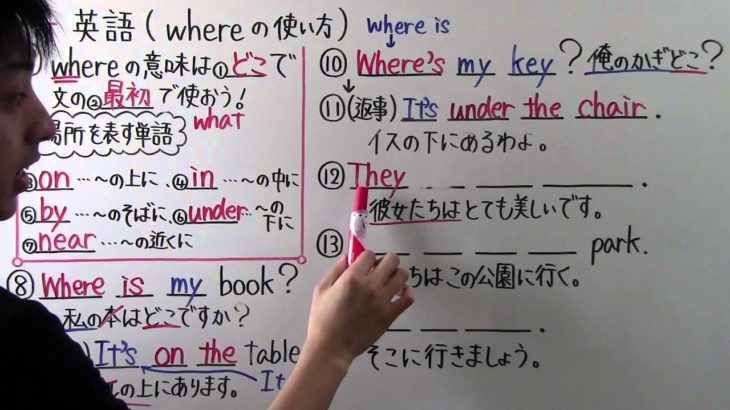 英語(whereの使い方)
whereの意味は①どこで
文の②最初で使おう!
what
場所を表す単語
on…～の上に、④in…～の中に
⑤by…～のそばに、⑥under…～の下に
⑦near…～の近くに
⑧Where is my book?
私の本はどこですか?
It's on the table
の上にあります。
It
where is
⑩Where's my key?俺のかぎどこ?
⑪(返事)It's under the chair.
イスの下にあるわよ。
⑫They
彼女たちはとても美しいです。
⑬ park.
ちはこの公園に行く。
.
そこに行きましょう。